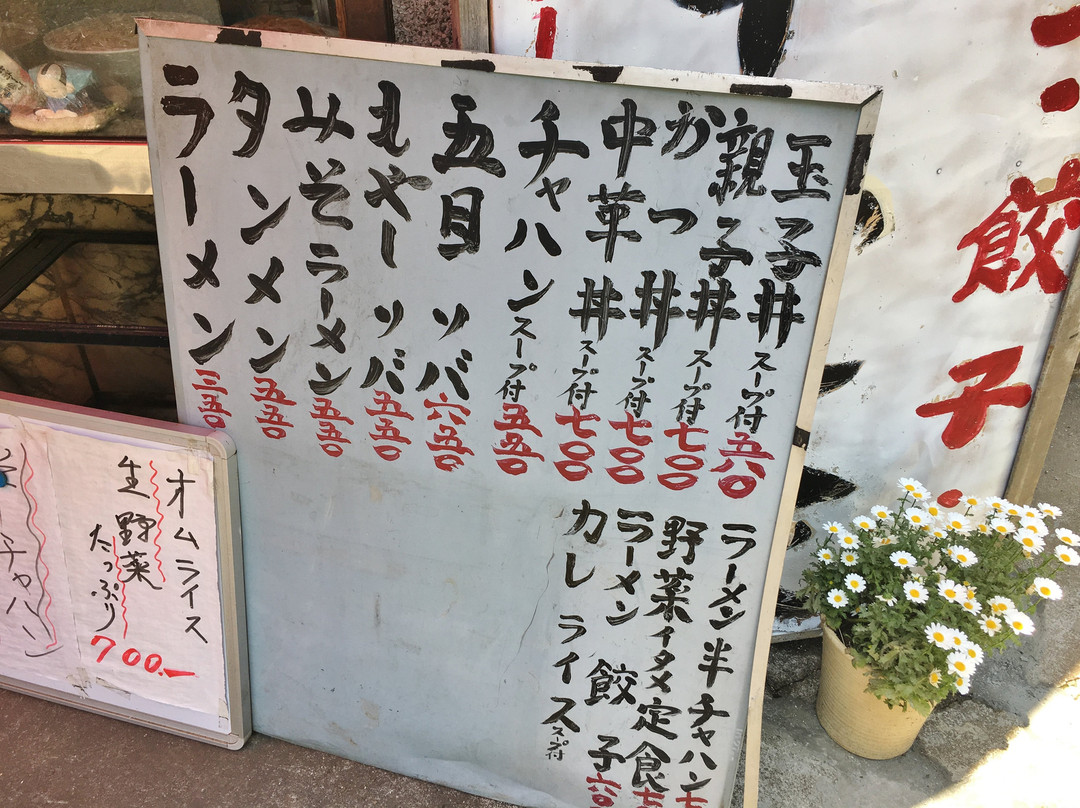 餃子
玉子丼 スープ付 五八〇
親子丼 スープ付 七〇〇
かつ丼 スープ付 七〇〇
中華丼 スープ付 七〇〇
チャハン スープ付 五五〇
五目ソバ 六五〇
もやしソバ 五五〇
みそラーメン 五五〇
タンメン 五五〇
ラーメン 三五〇
ラーメン 半チャハン 七
野菜イタメ定食 七
ラーメン 餃子 六〇
カレーライス スープ付
オムライス
生野菜
たっぷり
700.-
チャハン